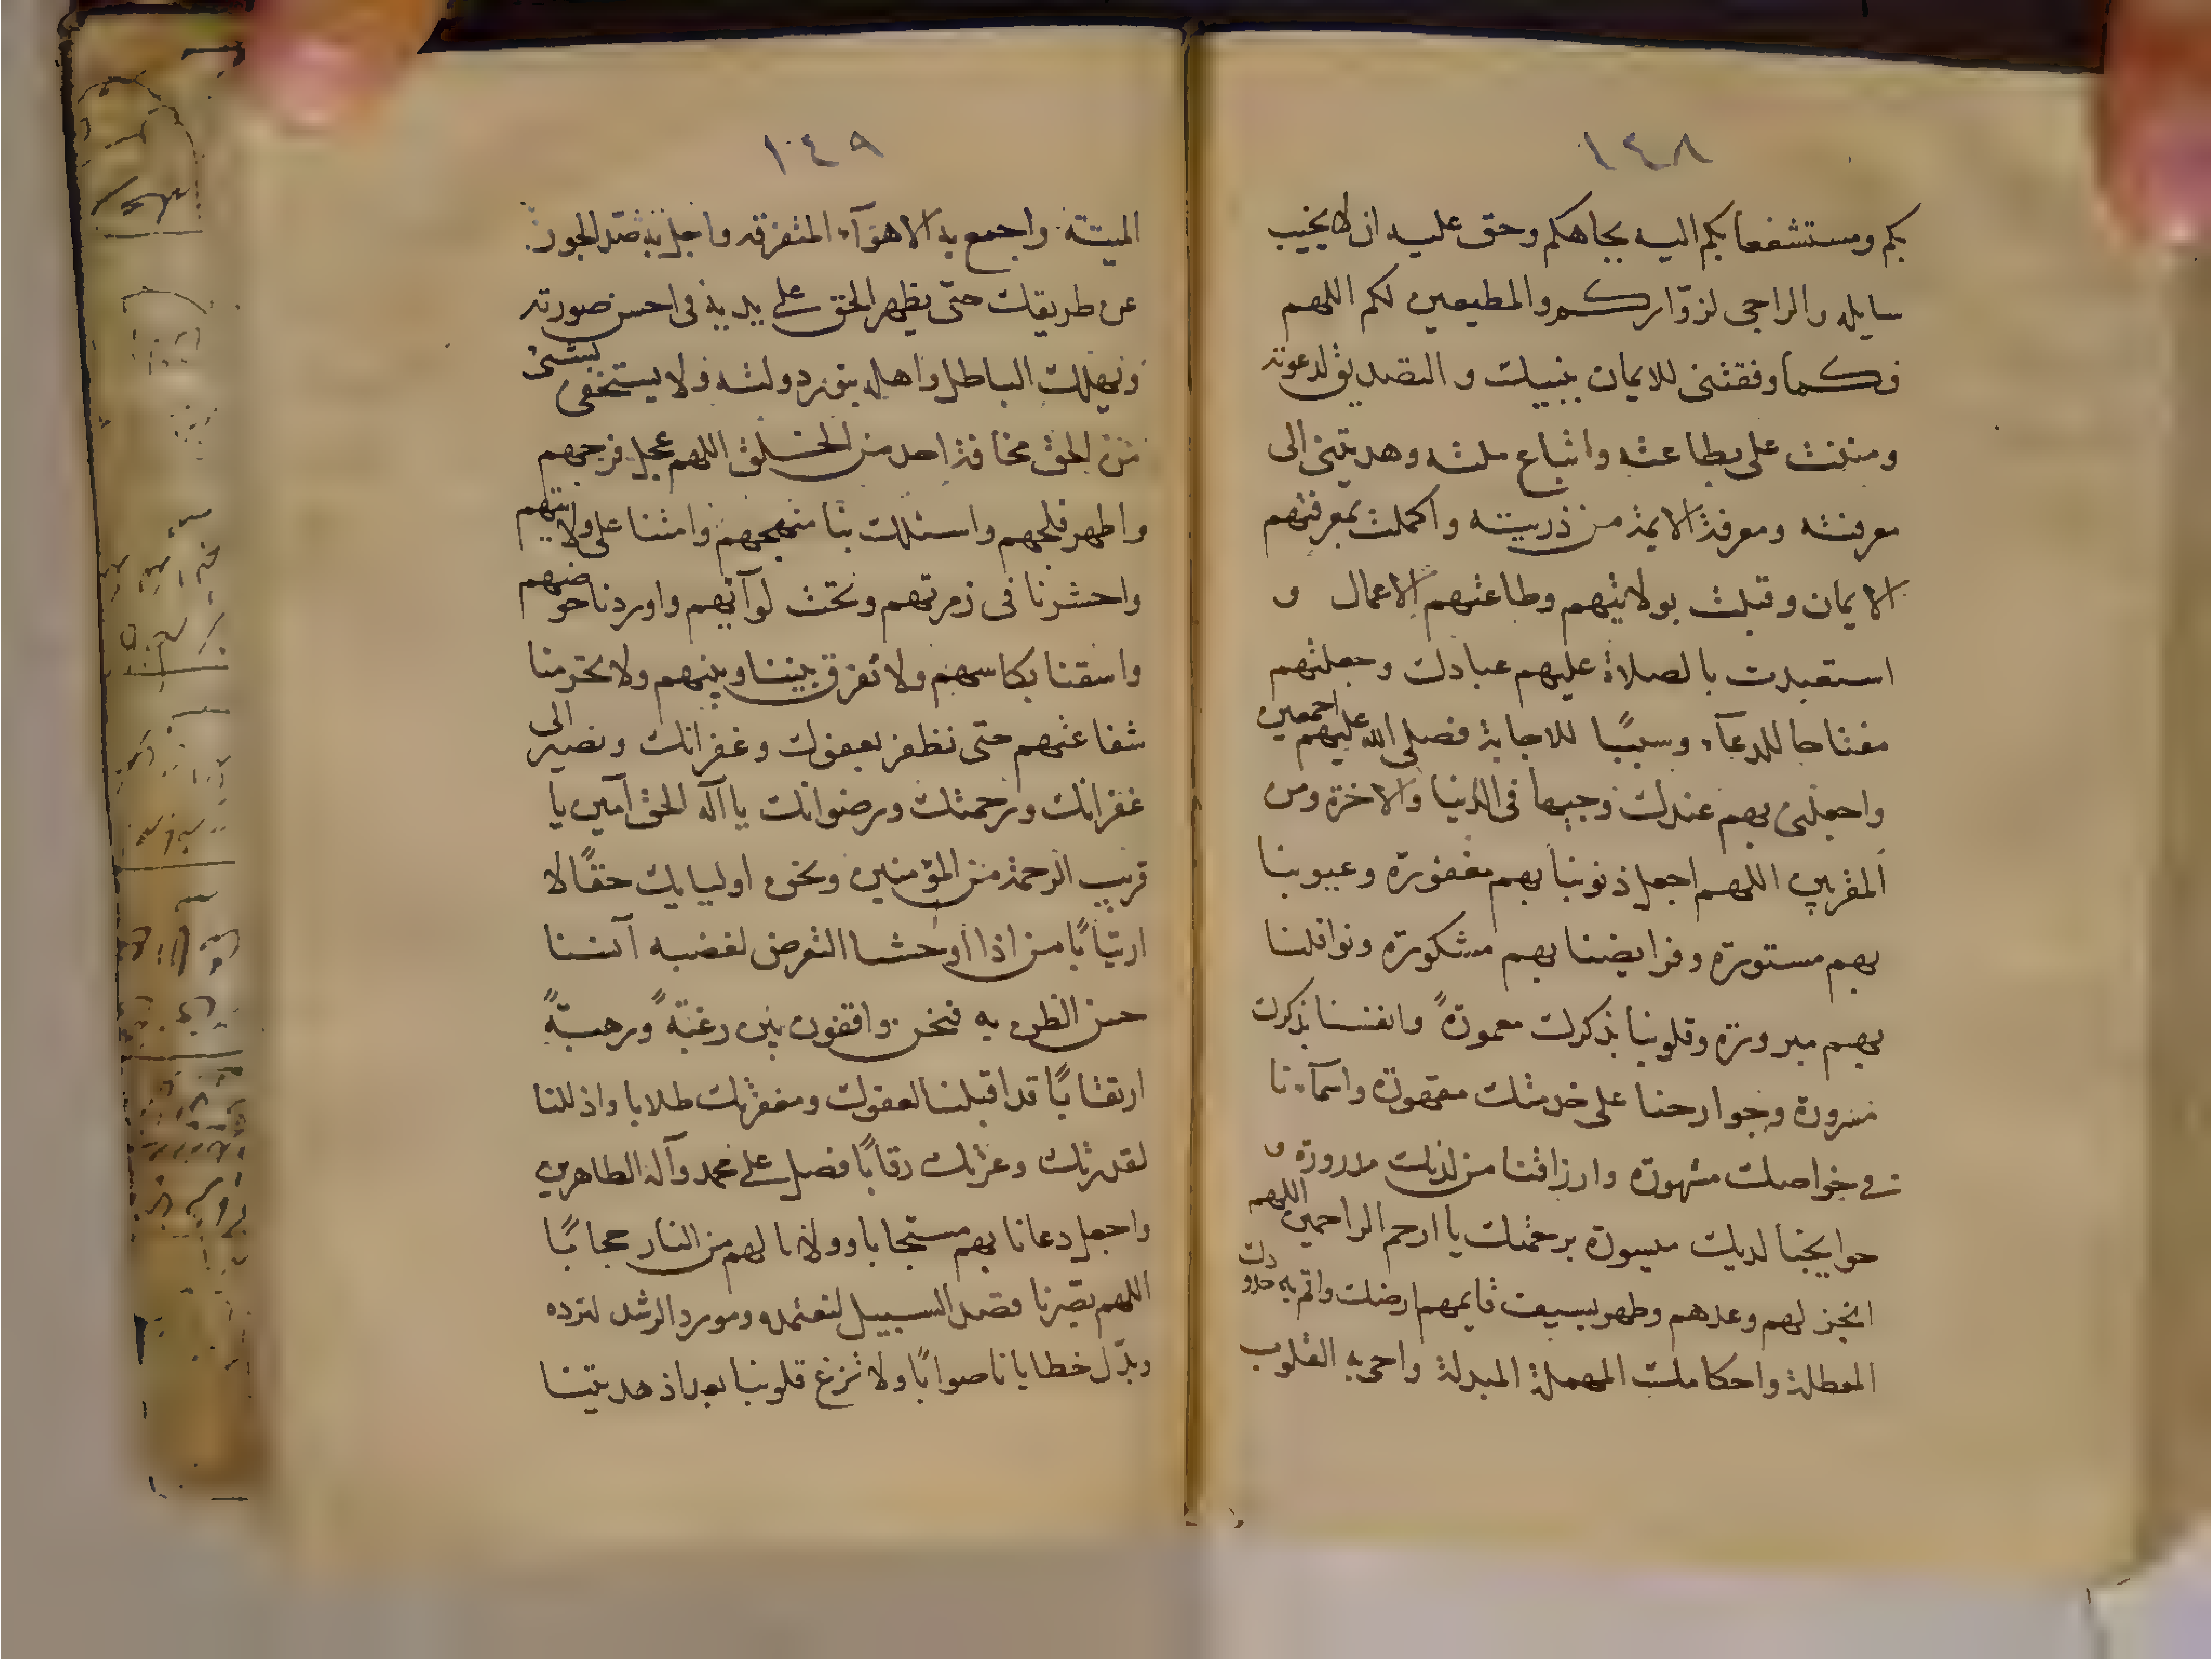 ١٤٨
بكم ومستشفعا بكم اليه بجاهكم وحق عليه ان لا يخيب
سايله والراجى لزوّاركم والمطيعين لكم اللهم
فكما وفقتنى للايمان بنبيك والتصديق لدعوته
ومننت على بطاعته واتباع ملته وهديتنى الى
معرفته ومعرفة الايمة من ذريته واكملت بمعرفتهم
الايمان وقبلت بولايتهم وطاعتهم الاعمال و
استعبدت بالصلاة عليهم عبادك وجعلتهم
مفتاحا للدعآء وسببًا للاجابة فصلى الله عليهم اجمعين
واجعلنى بهم عندك وجيها فى الدنيا والاخرة ومن
المقربين اللهم اجعل ذنوبنا بهم مغفورة وعيوبنا
بهم مستورة وفرايضنا بهم مشكورة ونوافلنا
بهم مبرورة وقلوبنا بذكرك معمورةً وانفسنا بذكرك
مسرورة وجوارحنا على خدمتك مقهورة واسمآءنا
فى خواصك مشهورة وارزاقنا من لديك مدرورة و
حوايجنا لديك ميسورة برحمتك يا ارحم الراحمين اللهم
انجز لهم وعدهم وطهر بسيف قايمهم ارضك واقم به حدودك
المعطلة واحكامك المهملة المبدلة واحى به القلوب
١٤٩
الميتة واجمع به الاهوآء المتفرقه واجل به صد الجور
عن طريقك حتى يظهر الحق على يديه فى احسن صورته
ويهلك الباطل واهله بنور دولته ولا يستخفى بشىء
من الحق مخافة احد من الخلق اللهم عجل فرجهم
واظهر فلجهم واسلك بنا منهجهم وامتنا على ولايتهم
واحشرنا فى زمرتهم وتحت لوآئهم واوردنا حوضهم
واسقنا بكاسهم ولا تفرق بيننا وبينهم ولا تحرمنا
شفاعتهم حتى نظفر بعفوك وغفرانك ونصير الى
غفرانك ورحمتك ورضوانك يا اله الحق آمين يا
قريب الرحمة من المؤمنين ونحن اوليايك حقًا لا
ارتيابًا من اذا اوحشنا التعرض لغضبه آنسنا
حسن الظن به فنحن واقفون بين رغبةً ورهبةً
ارتقابًا قد اقبلنا لعفوك ومغفرتك طلابا واذللنا
لقدرتك وعزتك رقابًا فصل على محمد وآله الطاهرين
واجعل دعانا بهم مستجابا وولانا لهم من النار حجابًا
اللهم بصّرنا قصد السبيل لنعتمده ومورد الرشد لنرده
وبدّل خطايانا صوابًا ولا تزغ قلوبنا بعد اذ هديتنا